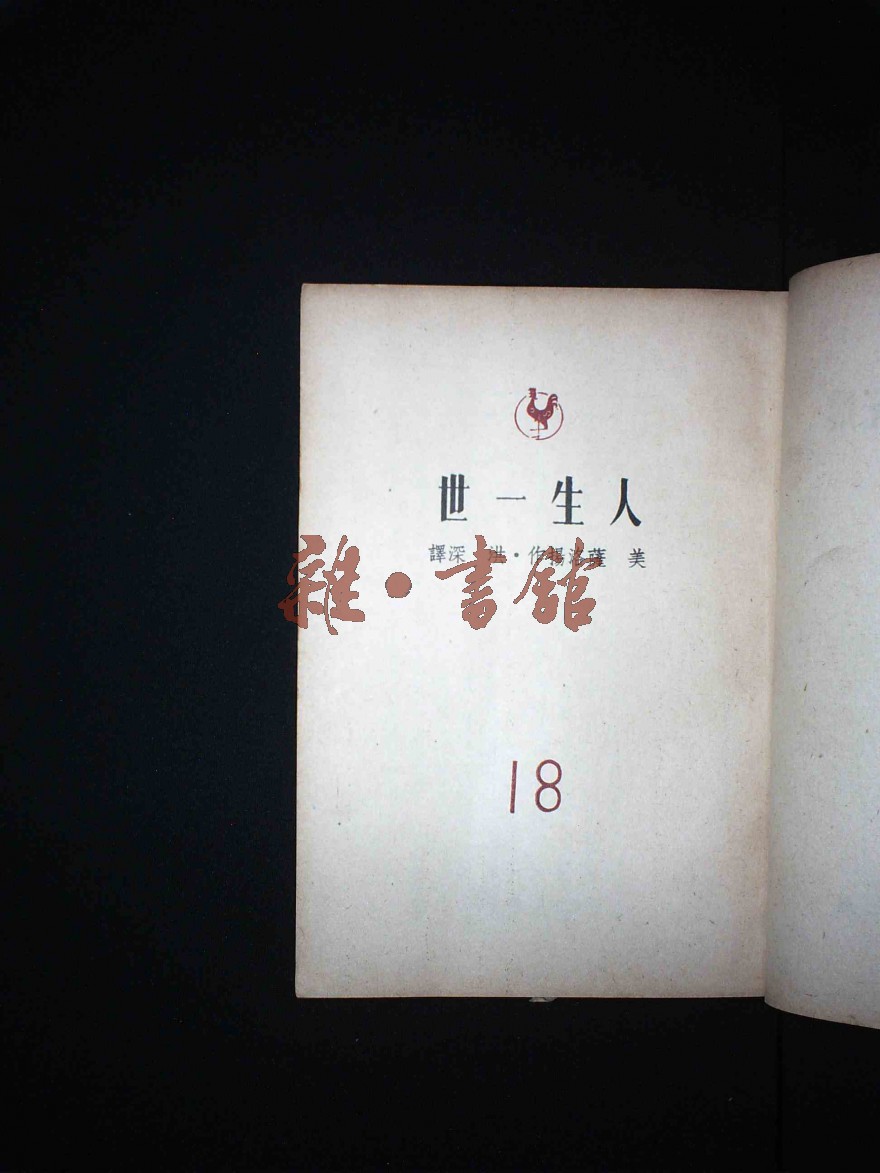 人生一世
美 薩洛揚作·洪 深譯
雜·書館
18